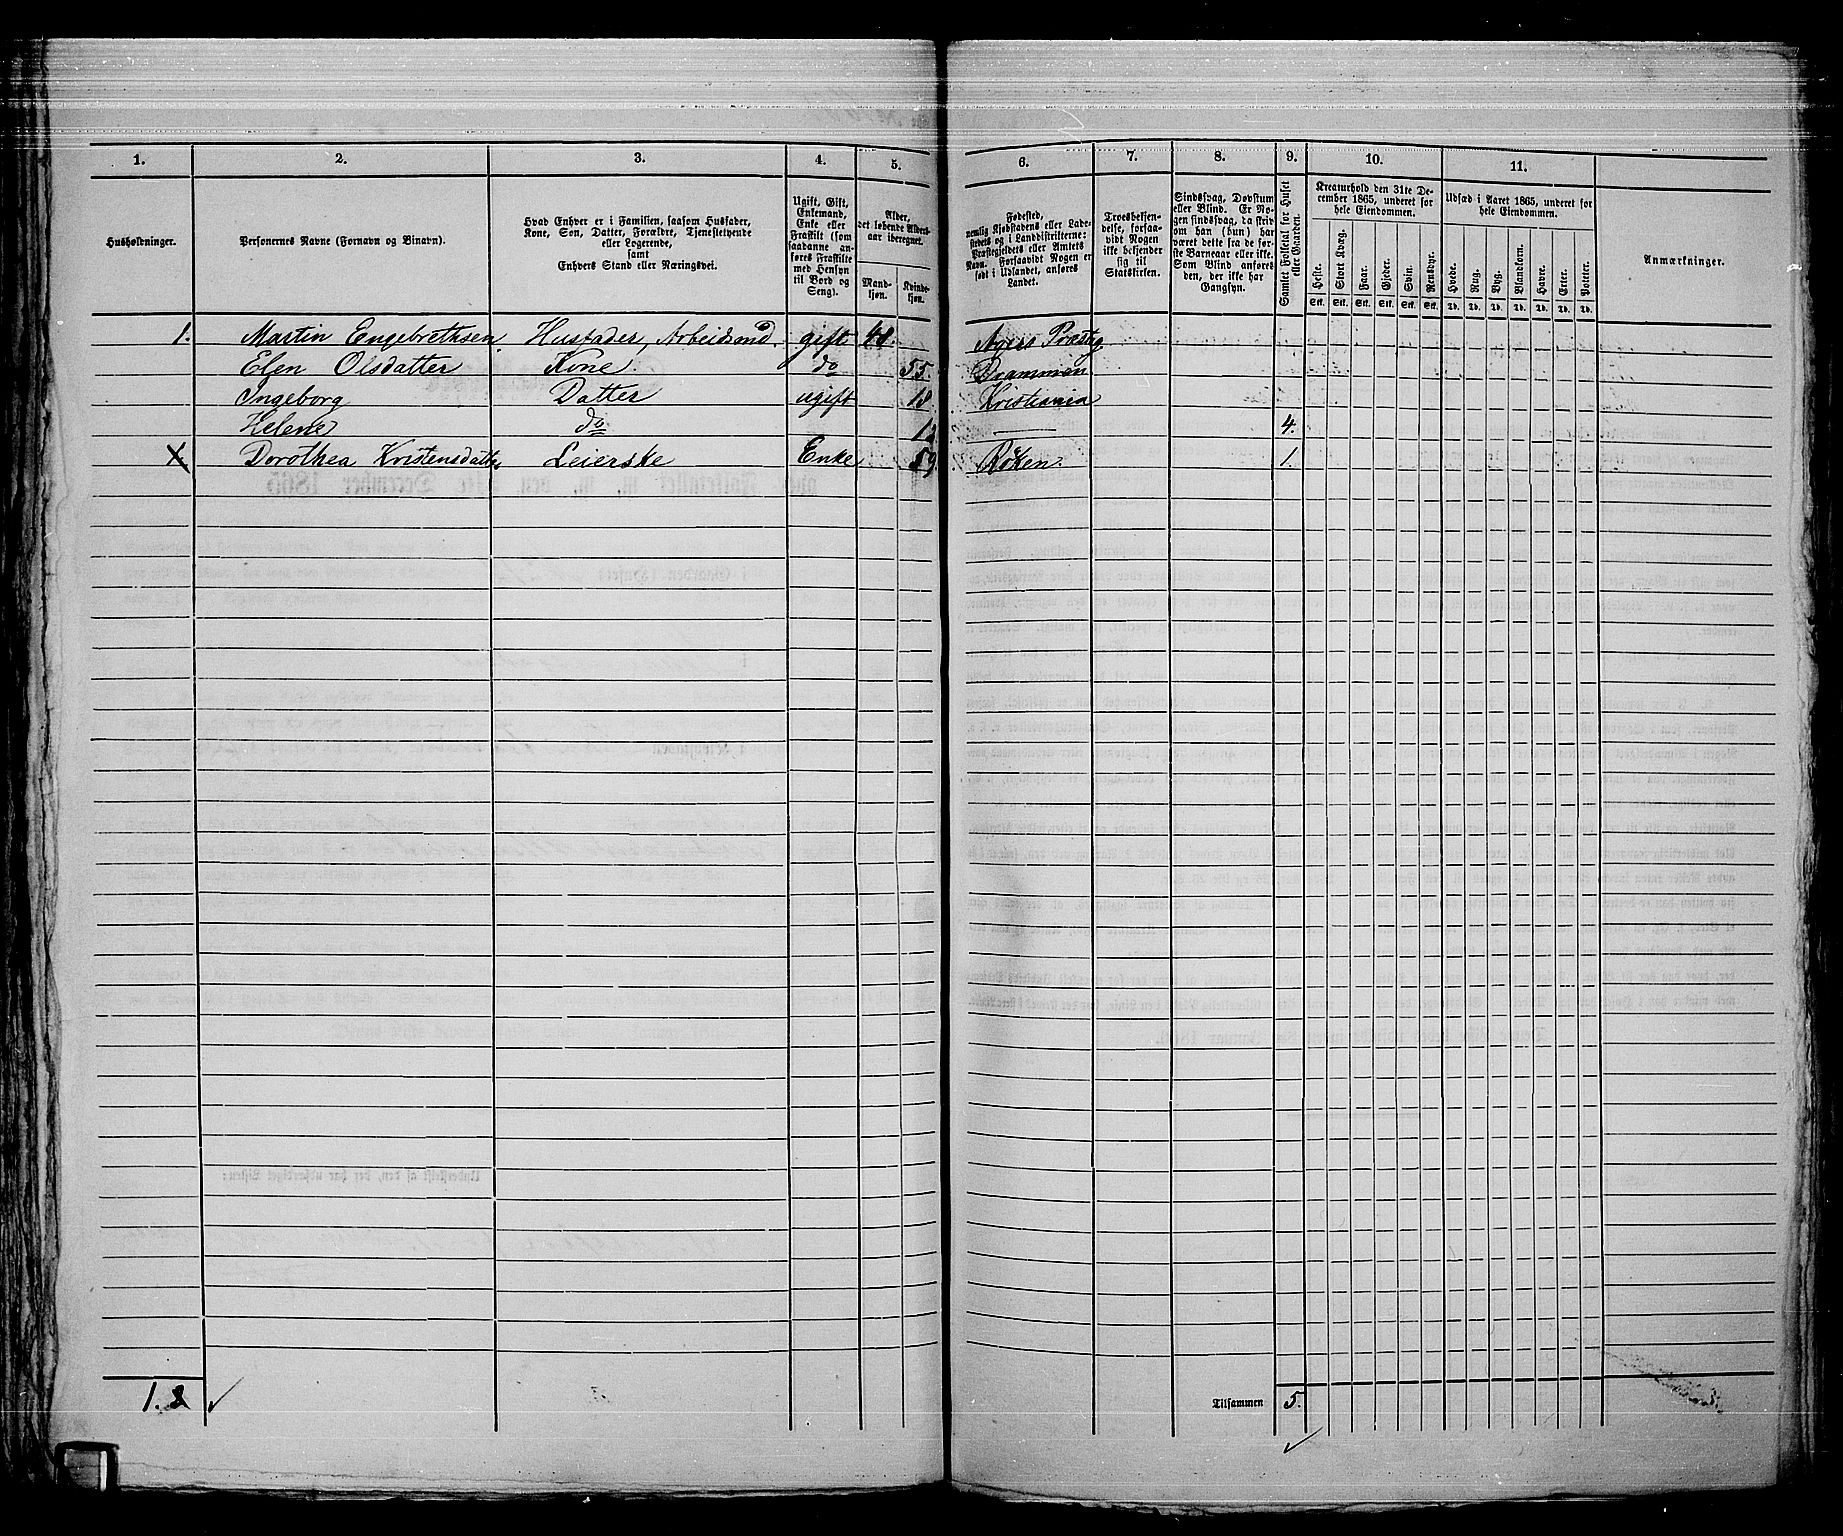 1. 2. 3. 4. 5. 6. 7. 8. 9. 10. 11.
Husholdninger.
Personernes Navne (Fornavn og Binavn).
Hvad Enhver er i Familien, saasom Husfader,
Kone, Søn, Datter, Forældre, Tjenestetyende
eller Logerende,
samt
Enhvers Stand eller Næringsvei.
Ugift, Gift,
Enkemand,
Enke eller
Fraskilt (som
saadanne an-
føres Fraskilte
med Hensyn
til Bord og
Seng).
Alder,
det løbende Alders-
aar iberegnet.
Mand-
kjøn.
Kvinde-
kjøn.
Fødested,
nemlig Kjøbstadens eller Lade-
stedets og i Landdistrikterne:
Præstegjeldets eller Amtets
Navn. Forsaavidt Nogen er
født i Udlandet, anføres
Landet.
Troesbekjen-
delse, forsaa-
vidt Nogen
ikke bekjender
sig til
Statskirken.
Sindssvag, Døvstum
eller Blind. Er No-
gen sindssvag, da skriv
om han (hun) har
været dette fra de før-
ste Barneaar eller ikke.
Som Blind anføres
den, der ikke har
Gangsyn.
Samlet Folketal for Huset
eller Gaarden.
Kreaturhold den 31te De-
cember 1865, underet for
hele Eiendommen.
Heste. Stort Kvæg. Faar. Gjeder. Svin. Rensdyr.
Stk. Stk. Stk. Stk. Stk. Stk.
Udsæd i Aaret 1865, underet for
hele Eiendommen.
Hvede. Rug. Byg. Blandkorn. Havre. Erter. Poteter.
Td. Td. Td. Td. Td. Td. Td.
Anmærkninger.
1. Martin Engebrethsen Husfader, Arbeidsmd. gift 48. Agers Præstg
Elen Olsdatter Kone. do 55. Drammen
Ingeborg Datter ugift 18 Kristiania
Helene do 4.
Dorothea Kristensdatter Leierske Enke 59 Røken. 1.
1.
Tilsammen 5.